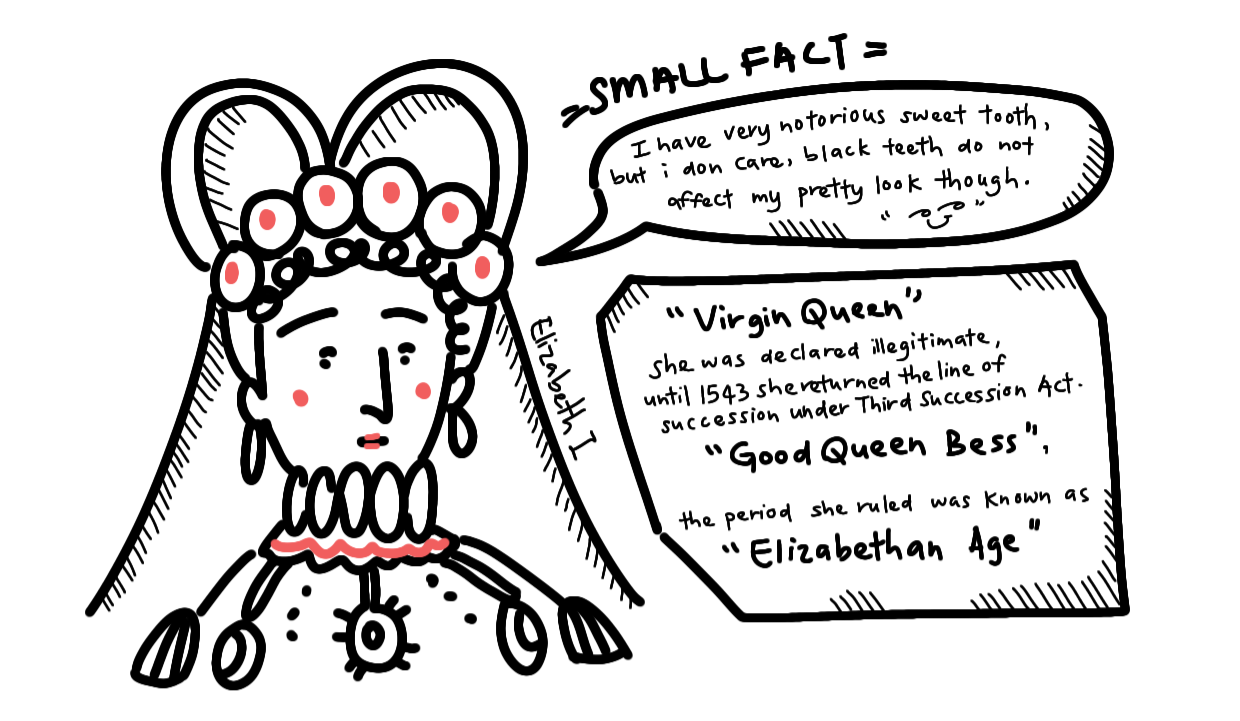 = SMALL FACT =
I have very notorious sweet tooth,
but i don care, black teeth do not
affect my pretty look though.
" "
Elizabeth I
"Virgin Queen",
she was declared illegitimate,
until 1543 she returned the line of
succession under Third Succession Act.
"Good Queen Bess",
the period she ruled was known as
"Elizabethan Age"